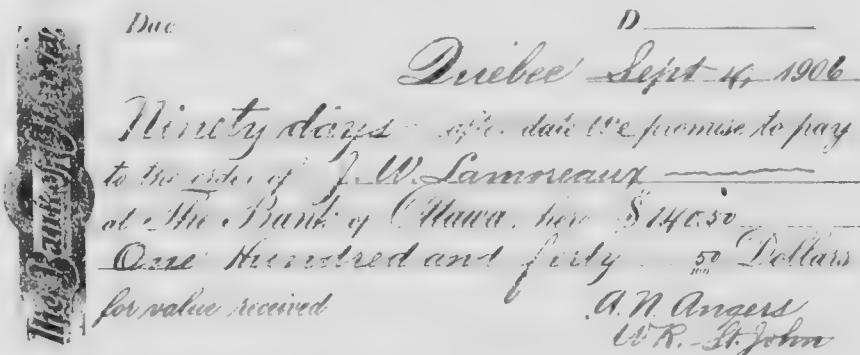 The Bank of Ottawa
Due D
Quebec Sept 4, 1906
Ninety days after date We promise to pay
to the order of J. W. Lamoreaux
at The Bank of Ottawa, here $140.50
One Hundred and forty 50/100 Dollars
for value received A. N. Angers
W R. St. John